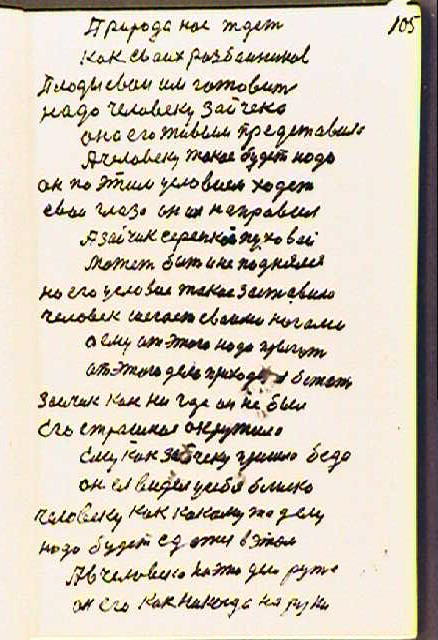 105
Природа нас ждет
как своих разбойников
Плоды свои им готовит
надо человеку зайчека
она его живым представила
А человеку такое будет надо
он по этим условиям ходет
свои глаза он их направил
А зайчик серенкой пуховой
может быть и не поднялся
но его условие такое заставило
человек шегает своими ногами
а ему от этого надо
от этого дела приходится бежать
Зайчик как ни где он не был
Его страшное окружило
Ему как зайчеку пришло беда
он ел видел у себя близко
человеку как какому то делу
надо будет
А в человека на это дело руже
он его как никогда на